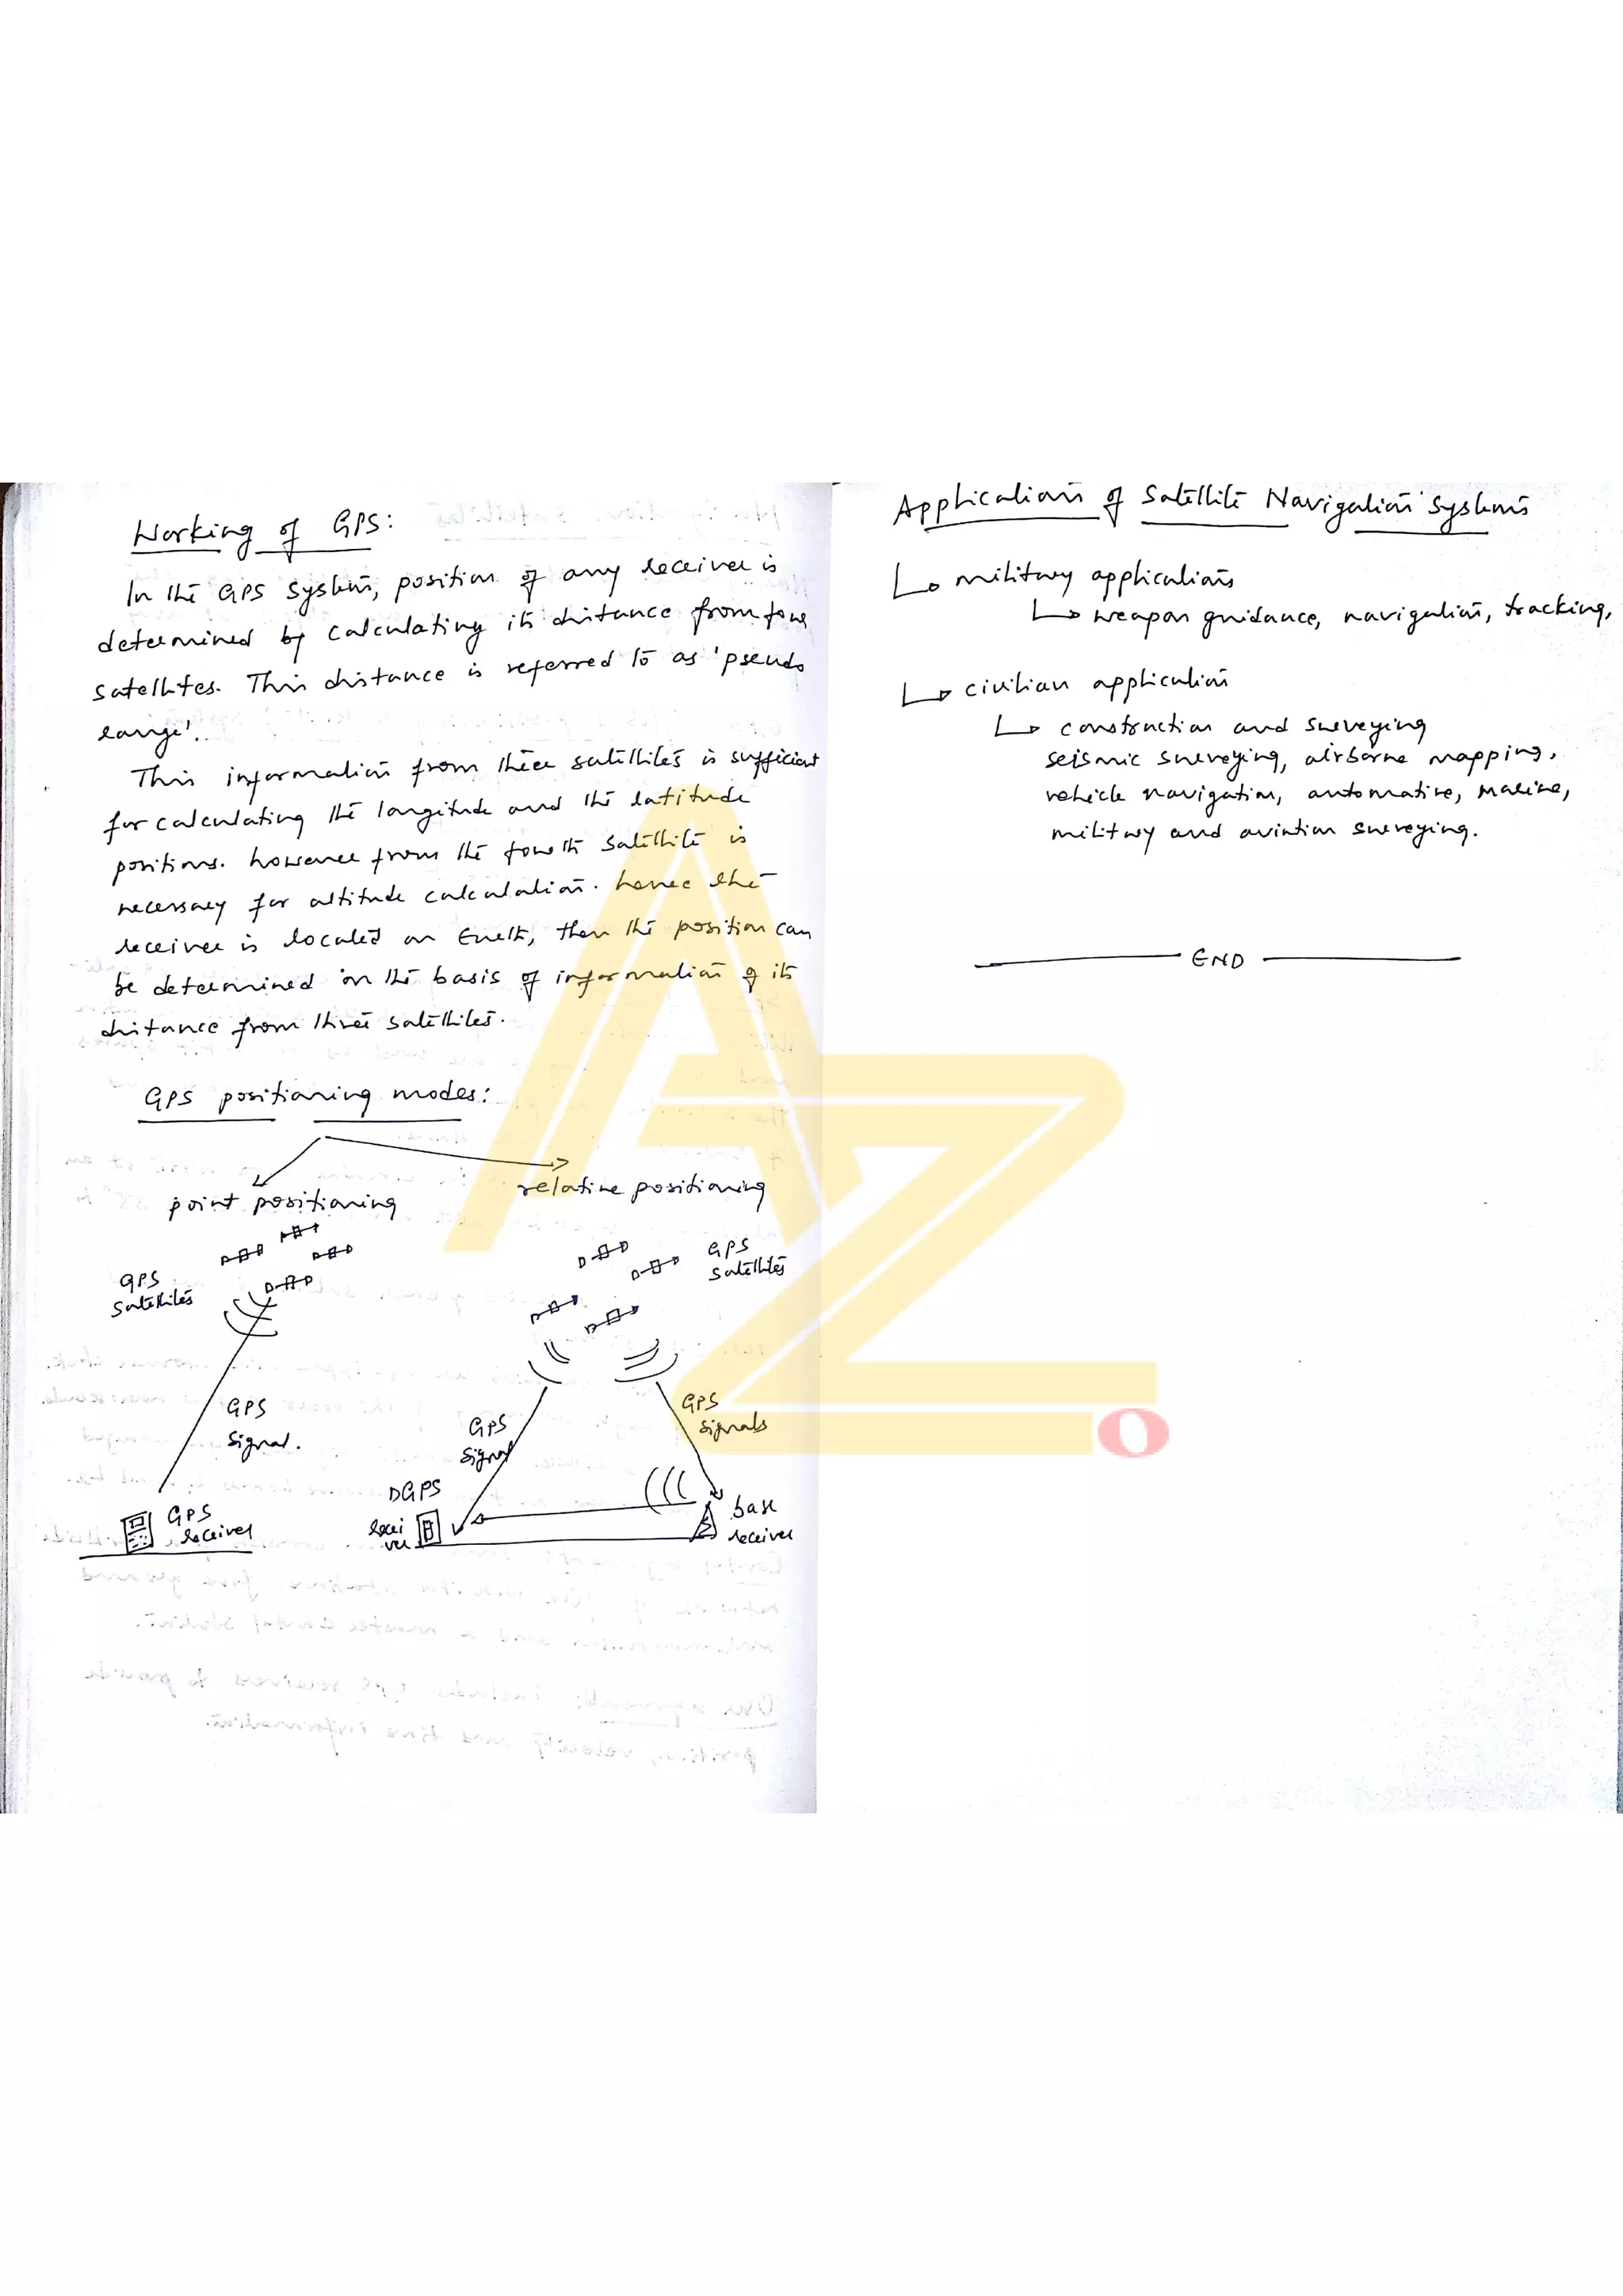 Working of GPS:
In the GPS system, position of any receiver is
determined by calculating its distance from four
satellites. This distance is referred to as 'pseudo
range'.
This information from three satellites is sufficient
for calculating the longitude and the latitude
positions. however from the fourth satellite is
necessary for altitude calculation. hence the
receiver is located on Earth, then the position can
be determined on the basis of information of its
distance from three satellites.
GPS positioning modes:
point positioning
relative positioning
GPS
satellites
GPS
signal.
GPS
receiver
GPS
satellites
GPS
signal
GPS
signals
DGPS
recei
ver
base
receiver
Applications of Satellite Navigation Systems
military applications
weapon guidance, navigation, tracking,
civilian application
construction and surveying
seismic surveying, airborne mapping,
vehicle navigation, automative, marine,
military and aviation surveying.
END
AZ.O